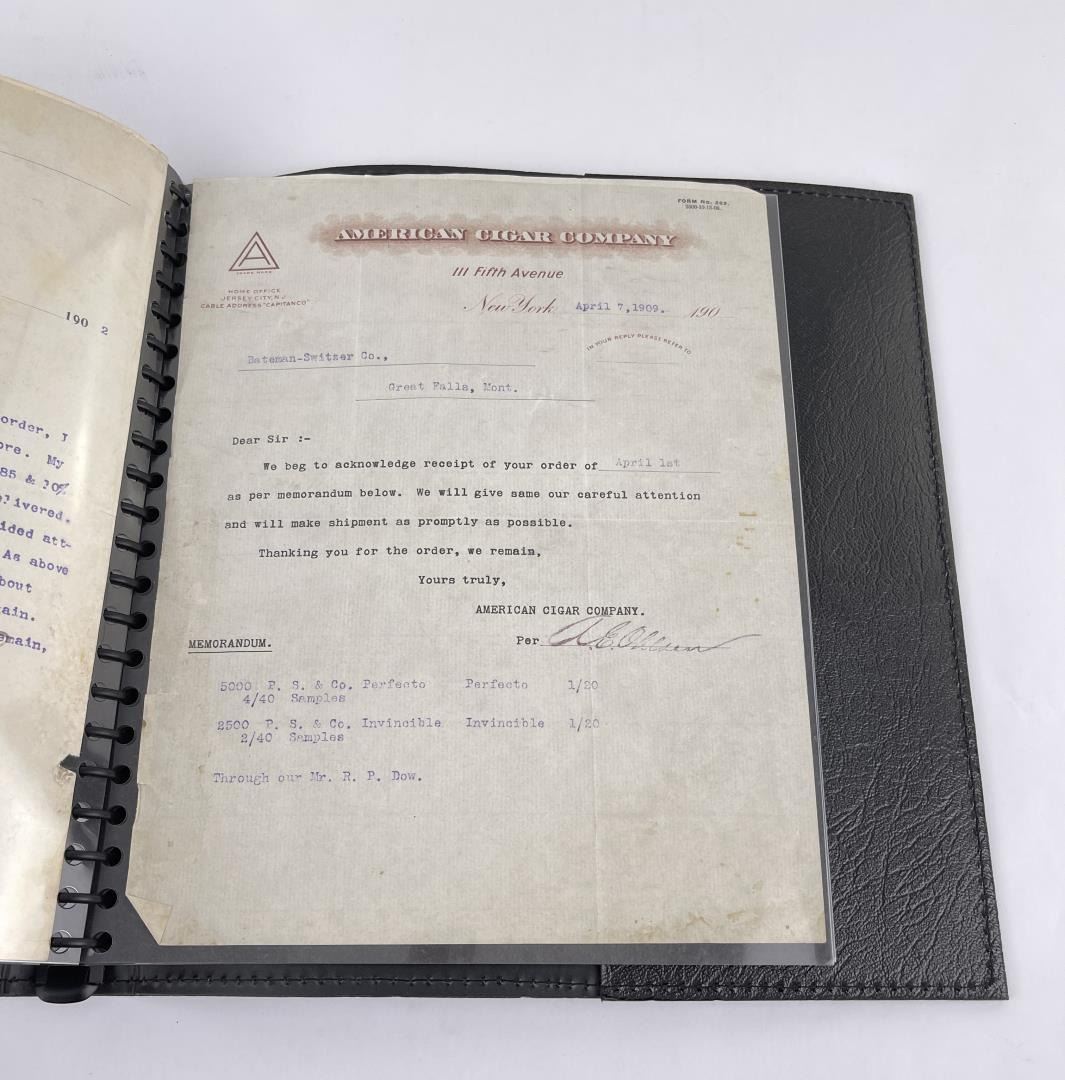 190 2
order, I
ore. My
85 & 10%
elivered.
ided att-
As above
bout
ain.
emain,
FORM No. 262.
AMERICAN CIGAR COMPANY
A
TRADE MARK
111 Fifth Avenue
HOME OFFICE
JERSEY CITY, N.J.
CABLE ADDRESS "CAPITANCO"
New York April 7,1909. 190
IN YOUR REPLY PLEASE REFER TO
Bateman-Switzer Co.,
Great Falls, Mont.
Dear Sir :-
We beg to acknowledge receipt of your order of April 1st
as per memorandum below. We will give same our careful attention
and will make shipment as promptly as possible.
Thanking you for the order, we remain,
Yours truly,
AMERICAN CIGAR COMPANY.
Per
MEMORANDUM.
5000 P. S. & Co. Perfecto Perfecto 1/20
4/40 Samples
2500 P. S. & Co. Invincible Invincible 1/20
2/40 Samples
Through our Mr. R. P. Dow.